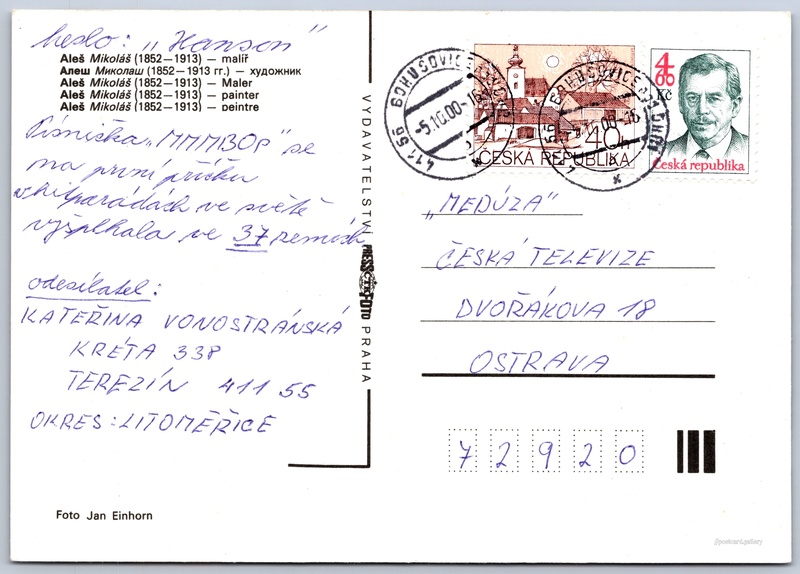 heslo: „Hanson"
Aleš Mikoláš (1852–1913) — malíř
Алеш Миколаш (1852–1913 гг.) — художник
Aleš Mikoláš (1852–1913) — Maler
Aleš Mikoláš (1852–1913) — painter
Aleš Mikoláš (1852–1913) — peintre
Písnička „MMMBOP" se
na první příčku
v hitparádách ve světě
vyšplhala ve 37 zemích
odesílatel:
KATEŘINA VONOSTRÁNSKÁ
KRÉTA 338
TEREZÍN 411 55
OKRES: LITOMĚŘICE
Foto Jan Einhorn
VYDAVATELSTVÍ PRESSFOTO PRAHA
ČTK
411 56 BOHUŠOVICE NAD OHŘÍ
-5.10.00-16
40 h
ČESKA REPUBLIKA
4
00
Kč
Česká republika
„MEDÚZA"
ČESKÁ TELEVIZE
DVOŘÁKOVA 18
OSTRAVA
72920